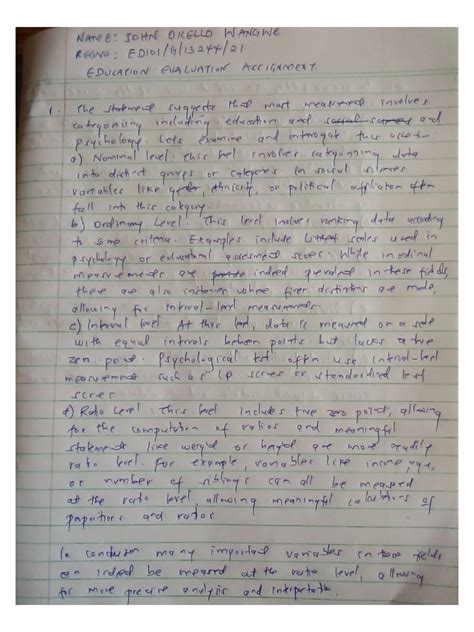 NAME: JOHN OKELLO WANGWE
REGNO: ED101/G/13244/21
EDUCATION EVALUATION ASSIGNMENT.
1. The statement suggests that most measurement involves
categorizing including education and social sciences and
psychology. Lets examine and interrogate this
a) Nominal level: this level involves categorizing data
into distinct groups or categories. In social sciences
variables like gender, ethnicity, or political affiliation often
fall into this category.
b) Ordinary Level: This level involves ranking data according
to some criteria. Examples include Likert scales used in
psychology or educational assessment scores. While inordinal
measurements are indeed prevalent in these fields,
there are also instances where finer distinctions are made,
allowing for interval-level measurements.
c) Interval level: At this level, data is measured on a scale
with equal intervals between points but lacks a true
zero point. Psychological test often use interval-level
measurement such as IQ scores or standardized test
scores
Ratio Level: This level includes true zero point, allowing
for the computation of ratios and meaningful
statements like weight or height are more readily
ratio level. For example, variables like income, age,
or number of siblings can all be measured
at the ratio level, allowing meaningful calculations of
proportions and ratios
In conclusion many important variables in these fields
can indeed be measured at the ratio level, allowing
for more precise analysis and interpretation.